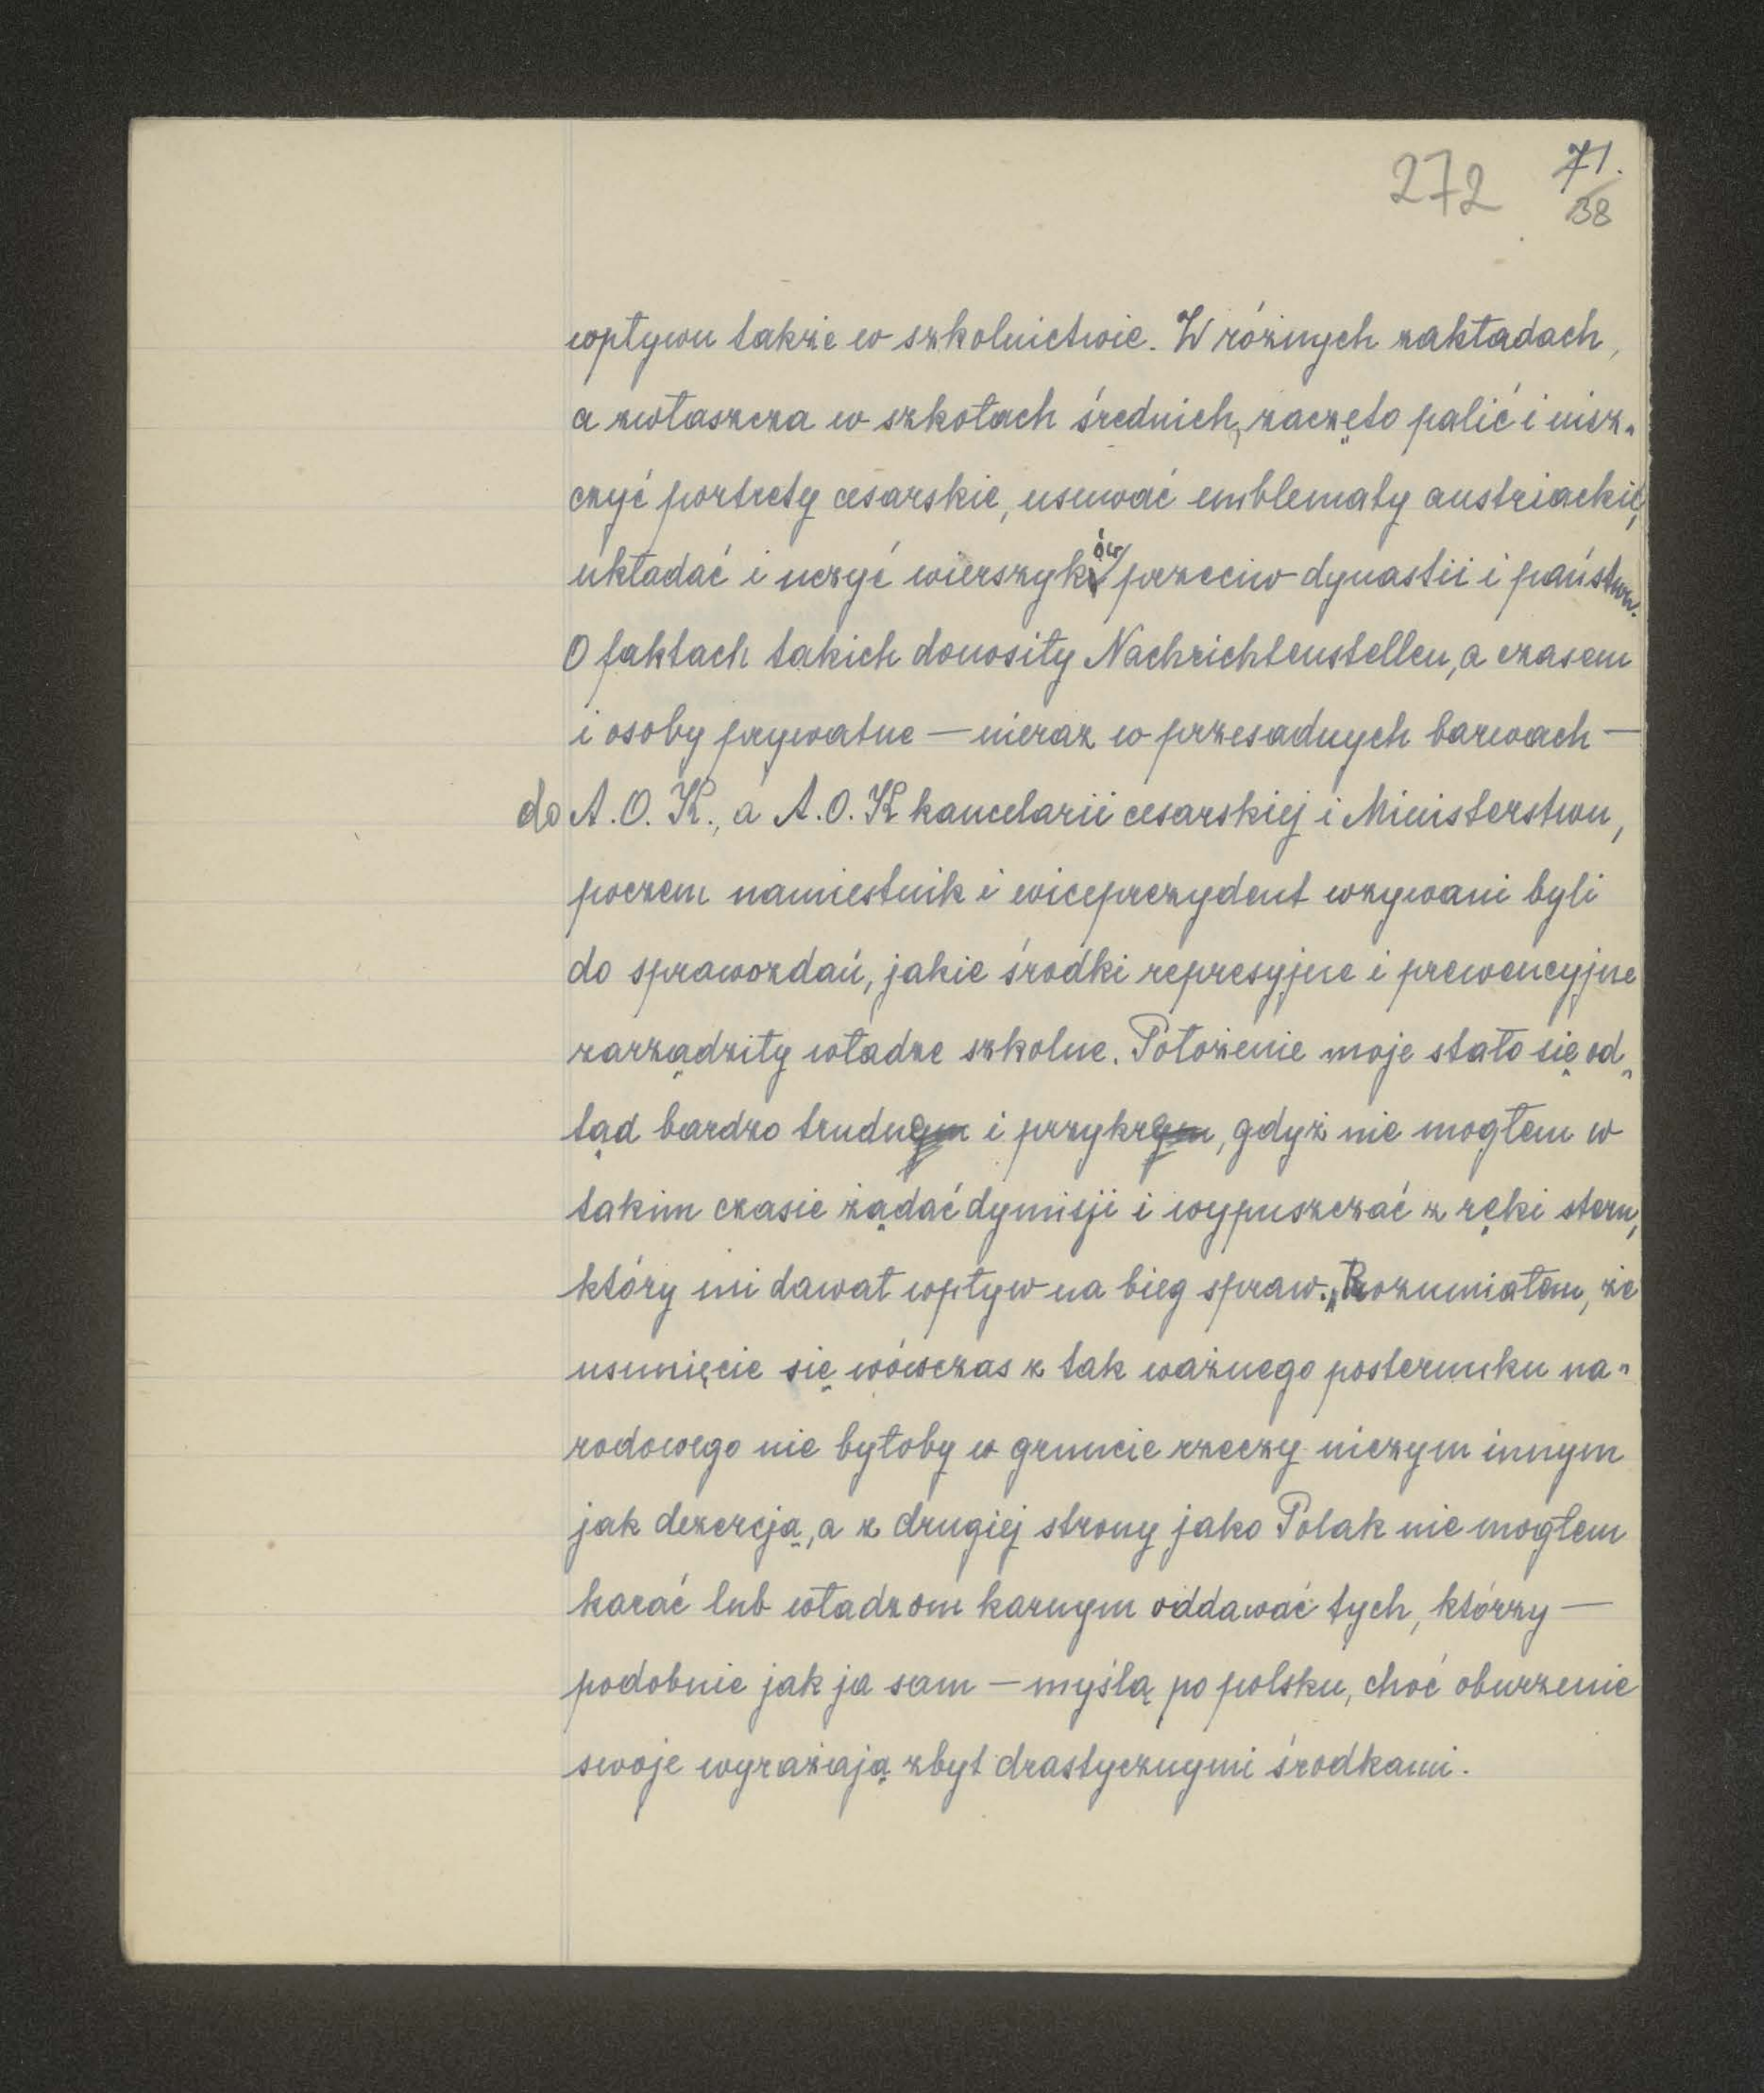 272 71.
38
wpływu także w szkolnictwie. W różnych zakładach,
a zwłaszcza w szkołach średnich, zaczęto palić i nisz-
czyć portrety cesarskie, usuwać emblematy austriackie,
układać i uczyć wierszyków przeciw dynastii i państwu.
O faktach takich donosiły Nachrichtenstellen, a czasem
i osoby prywatne — nieraz w przesadnych barwach —
do A. O. K., a A. O. K kancelarii cesarskiej i Ministerstwu,
poczem namiestnik i wiceprezydent wzywani byli
do sprawozdań, jakie środki represyjne i prewencyjne
zarządziły władze szkolne. Położenie moje stało się od-
tąd bardzo trudnym i przykrym, gdyż nie mogłem w
takim czasie żądać dymisji i wypuszczać z ręki steru,
który mi dawał wpływ na bieg spraw. Rozumiałem, że
usunięcie się wówczas z tak ważnego posterunku na-
rodowego nie byłoby w gruncie rzeczy niczym innym
jak dezercją, a z drugiej strony jako Polak nie mogłem
karać lub władzom karnym oddawać tych, którzy —
podobnie jak ja sam — myślą po polsku, choć oburzenie
swoje wyrażają zbyt drastycznymi środkami.